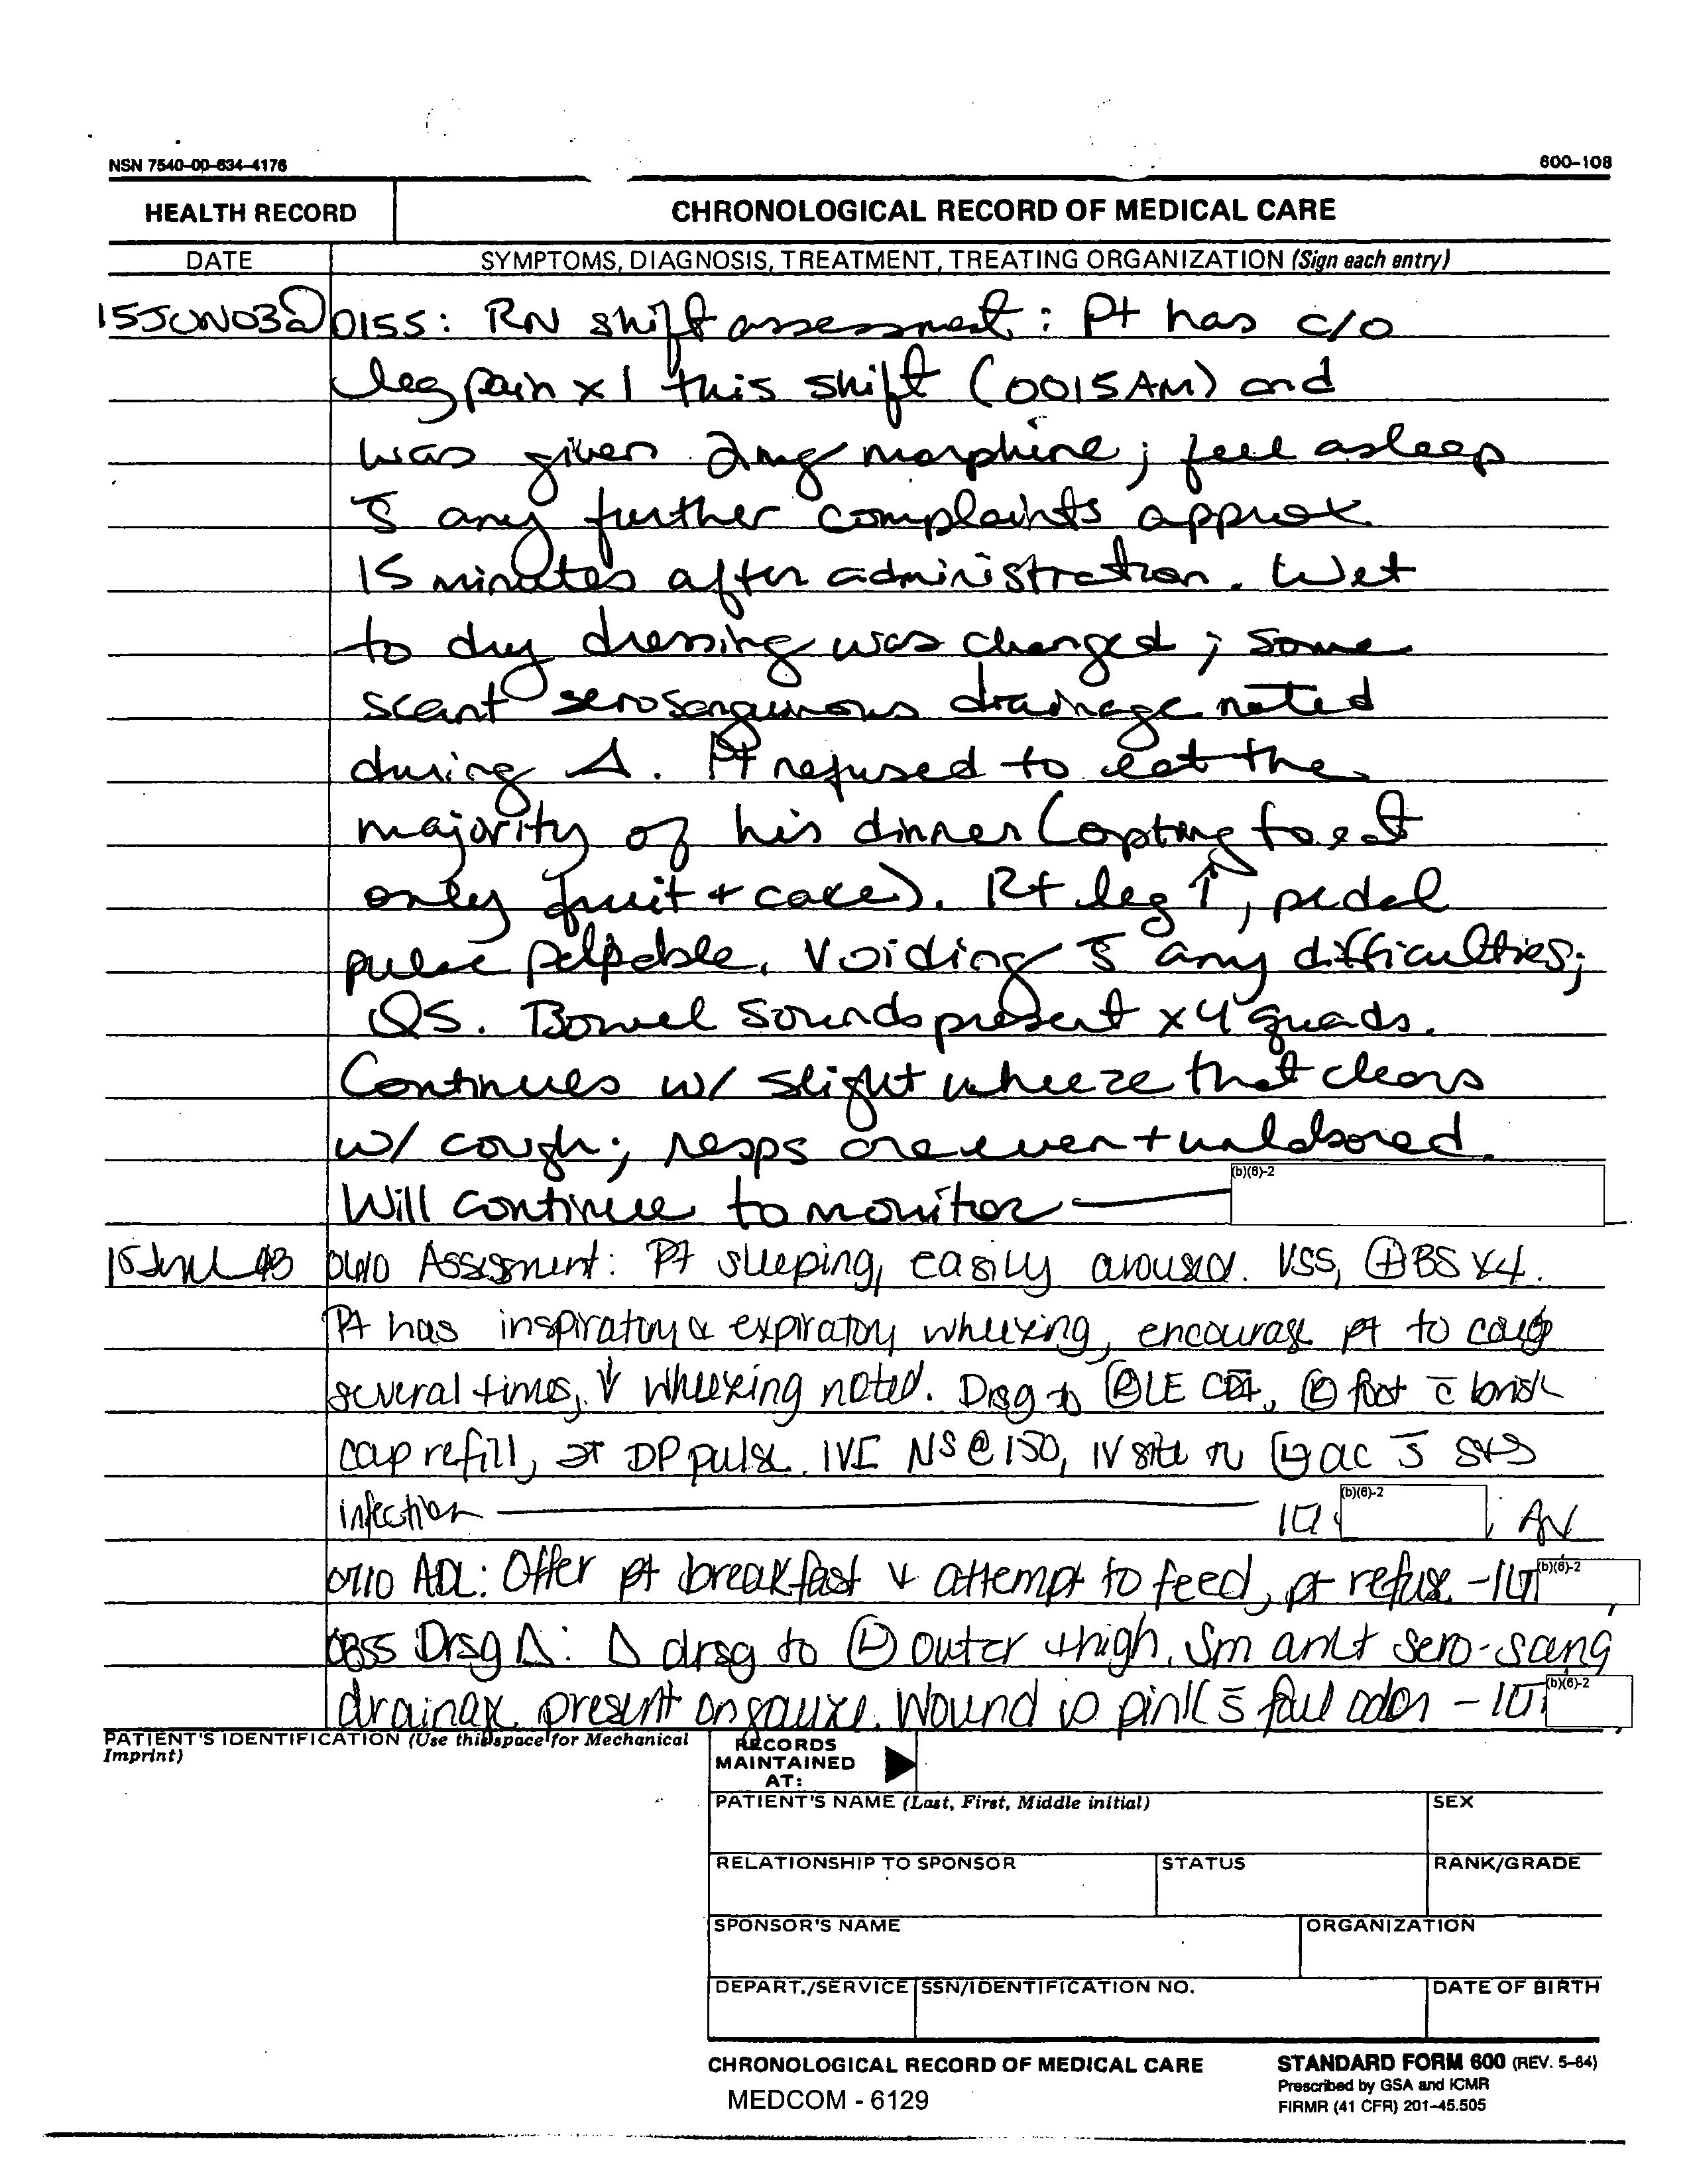 NSN 7540-00-634-4176
600-108
HEALTH RECORD
CHRONOLOGICAL RECORD OF MEDICAL CARE
DATE
SYMPTOMS, DIAGNOSIS, TREATMENT, TREATING ORGANIZATION (Sign each entry)
15JUN03 @ 0155: RN shift assessment: Pt has c/o
leg pain x 1 this shift (0015AM) and
was given 2mg morphine; fell asleep
s̄ any further complaints approx
15 minutes after administration. Wet
to dry dressing was changed; some
scant serosanguinous drainage noted
during Δ. Pt refused to eat the
majority of his dinner (opting to eat
only fruit + cake). Rt leg ↑, pedal
pulse palpable. Voiding s̄ any difficulties;
QS. Bowel sounds present x 4 quads.
Continues w/ slight wheeze that clears
w/ cough; resps are even + unlabored.
Will continue to monitor
(b)(6)-2
15 Jun 03 0410 Assessment: Pt sleeping, easily aroused. VSS, ⊕BS x4.
Pt has inspiratory & expiratory wheezing, encourage pt to coug
several times, ↓ wheezing noted. Drsg to Ⓡ LE CDI, Ⓡ foot c̄ brisk
cap refill, DP pulse. IVF NS @ 150, IV site Ⓛ ac s̄ S+S
infection
(b)(6)-2
0710 ADL: Offer pt breakfast & attempt to feed, pt refuse -
(b)(6)-2
0855 Drsg Δ: Δ drsg to Ⓛ outer thigh. Sm amt sero-sang
drainage present on gauze. Wound is pink s̄ foul odor -
(b)(6)-2
PATIENT'S IDENTIFICATION (Use this space for Mechanical
Imprint)
RECORDS
MAINTAINED
AT:
PATIENT'S NAME (Last, First, Middle initial)
SEX
RELATIONSHIP TO SPONSOR
STATUS
RANK/GRADE
SPONSOR'S NAME
ORGANIZATION
DEPART./SERVICE
SSN/IDENTIFICATION NO.
DATE OF BIRTH
CHRONOLOGICAL RECORD OF MEDICAL CARE
STANDARD FORM 600 (REV. 5-84)
Prescribed by GSA and ICMR
FIRMR (41 CFR) 201-45.505
MEDCOM - 6129